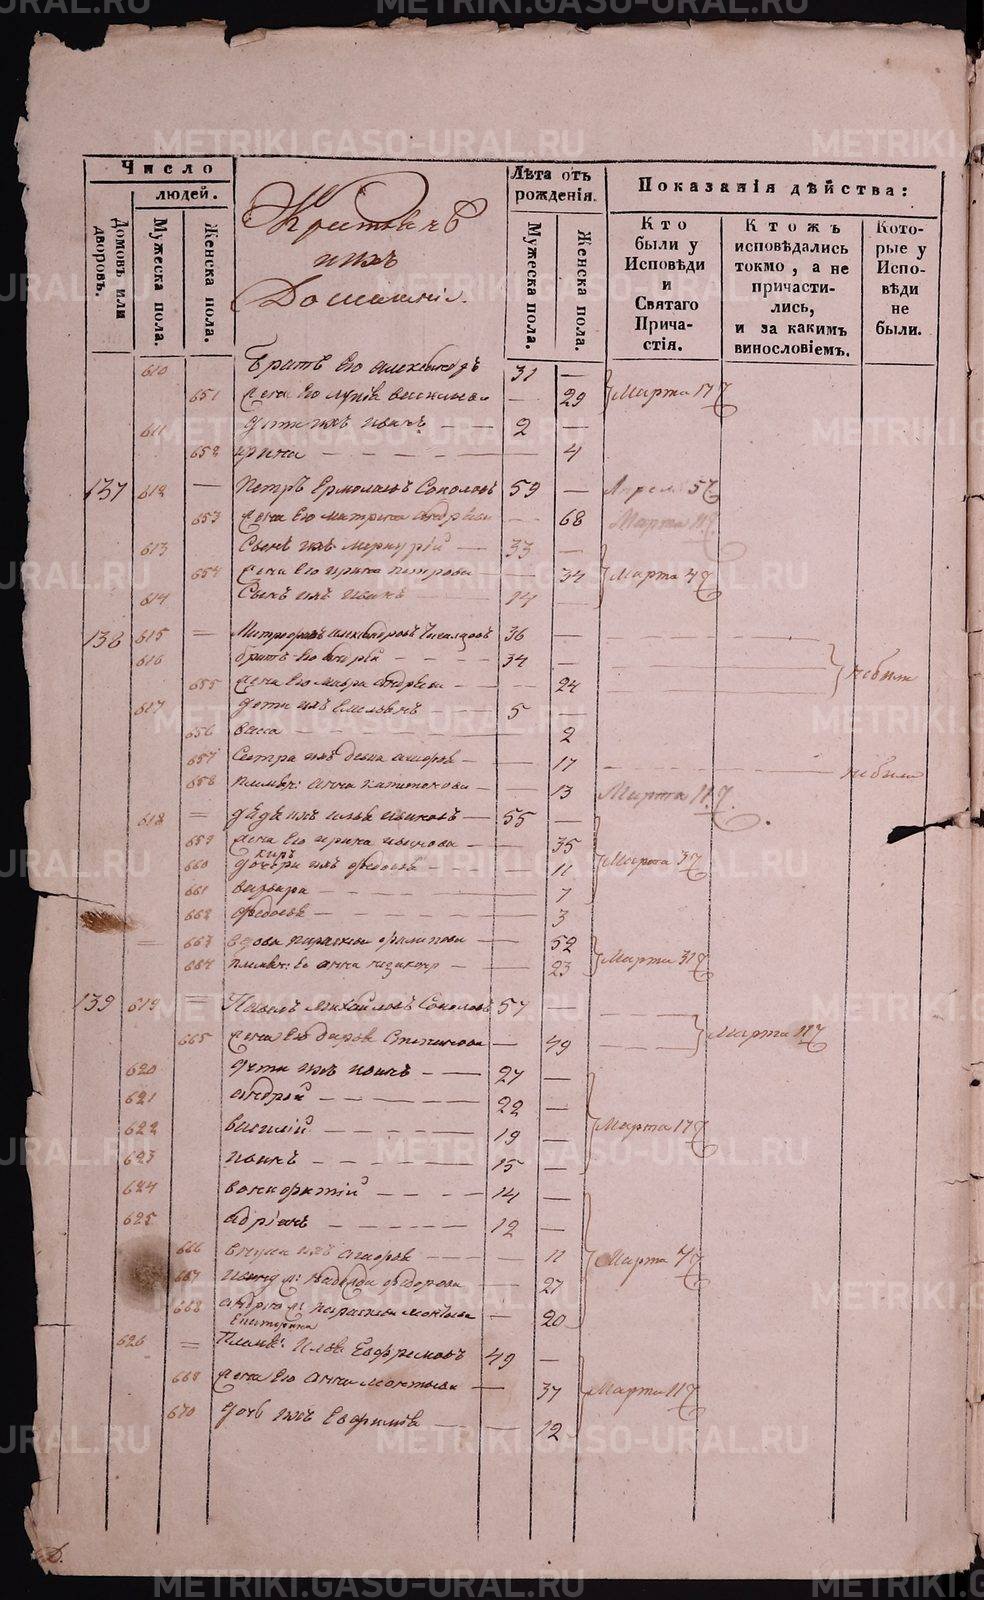 METRIKI.GASO-URAL.RU
Число
людей.
Домовъ или дворовъ.
Мужеска пола.
Женска пола.
Крестьянѣ
и ихъ
Домашніе.
Лѣта отъ рожденія.
Мужеска пола.
Женска пола.
Показанія дѣйства:
Кто были у Исповѣди и Святаго Причастія.
Ктожъ исповѣдались токмо, а не причастились, и за какимъ винословіемъ.
Которые у Исповѣди не были.
610 Братъ Его Александръ 31 —
651 Жена Его Васильева — 29 Марта 17
611 Дѣти ихъ Иванъ — — 2 —
652 Ирина — — — — 4
137 612 — Петръ Ермолаевъ Соколовъ 59 — Апреля 5
653 Жена Его Матрена Андреева — 68 Марта 11
613 Сынъ ихъ Меркурій — 33 —
654 Жена Его Ирина Петрова — — 34 Марта 4
614 Сынъ ихъ Иванъ — — 14 —
138 615 = Александровъ 36 —
616 Братъ Его Андрей — — 34 — небыли
655 Жена Его Мавра Андреева — — 24
617 Дети ихъ Емельянъ — — 5 —
656 Васса — — — 2
657 Сестра ихъ — — 17 — небыли
658 Племян: Анна — — 13 Марта 11
618 = Дядя ихъ Илья Ивановъ — 55 —
659 Жена Его Ирина Иванова — — 35
660 Дочери ихъ Федосья — — 11 Марта 3
661 Варвара — — — 7
662 Федосья — — — 3
663 Вдова Параскева Филипова — — 52
664 Племян: Ее Анна — — 23 Марта 31
139 619 = Павелъ Михайловъ Соколовъ 57 —
665 Жена Его Дарья Степанова — 49 Марта 11
620 Дѣти ихъ Иванъ — — 27 —
621 Андрей — — — 22 —
622 Василій — — — 19 — Марта 17
623 Иванъ — — — 15 —
624 — — — 14 —
625 Адріанъ — — — 12 —
666 Внука ихъ — — — 11 Марта 4
667 Надежда Федорова — — 27
668 Андрею ж: Параскева — 20
Екатерина
626 = Племян: Илья Ефремовъ 49 —
669 Жена Его Анна Леонтьева — 37 Марта 11
670 Дочь ихъ — — 12